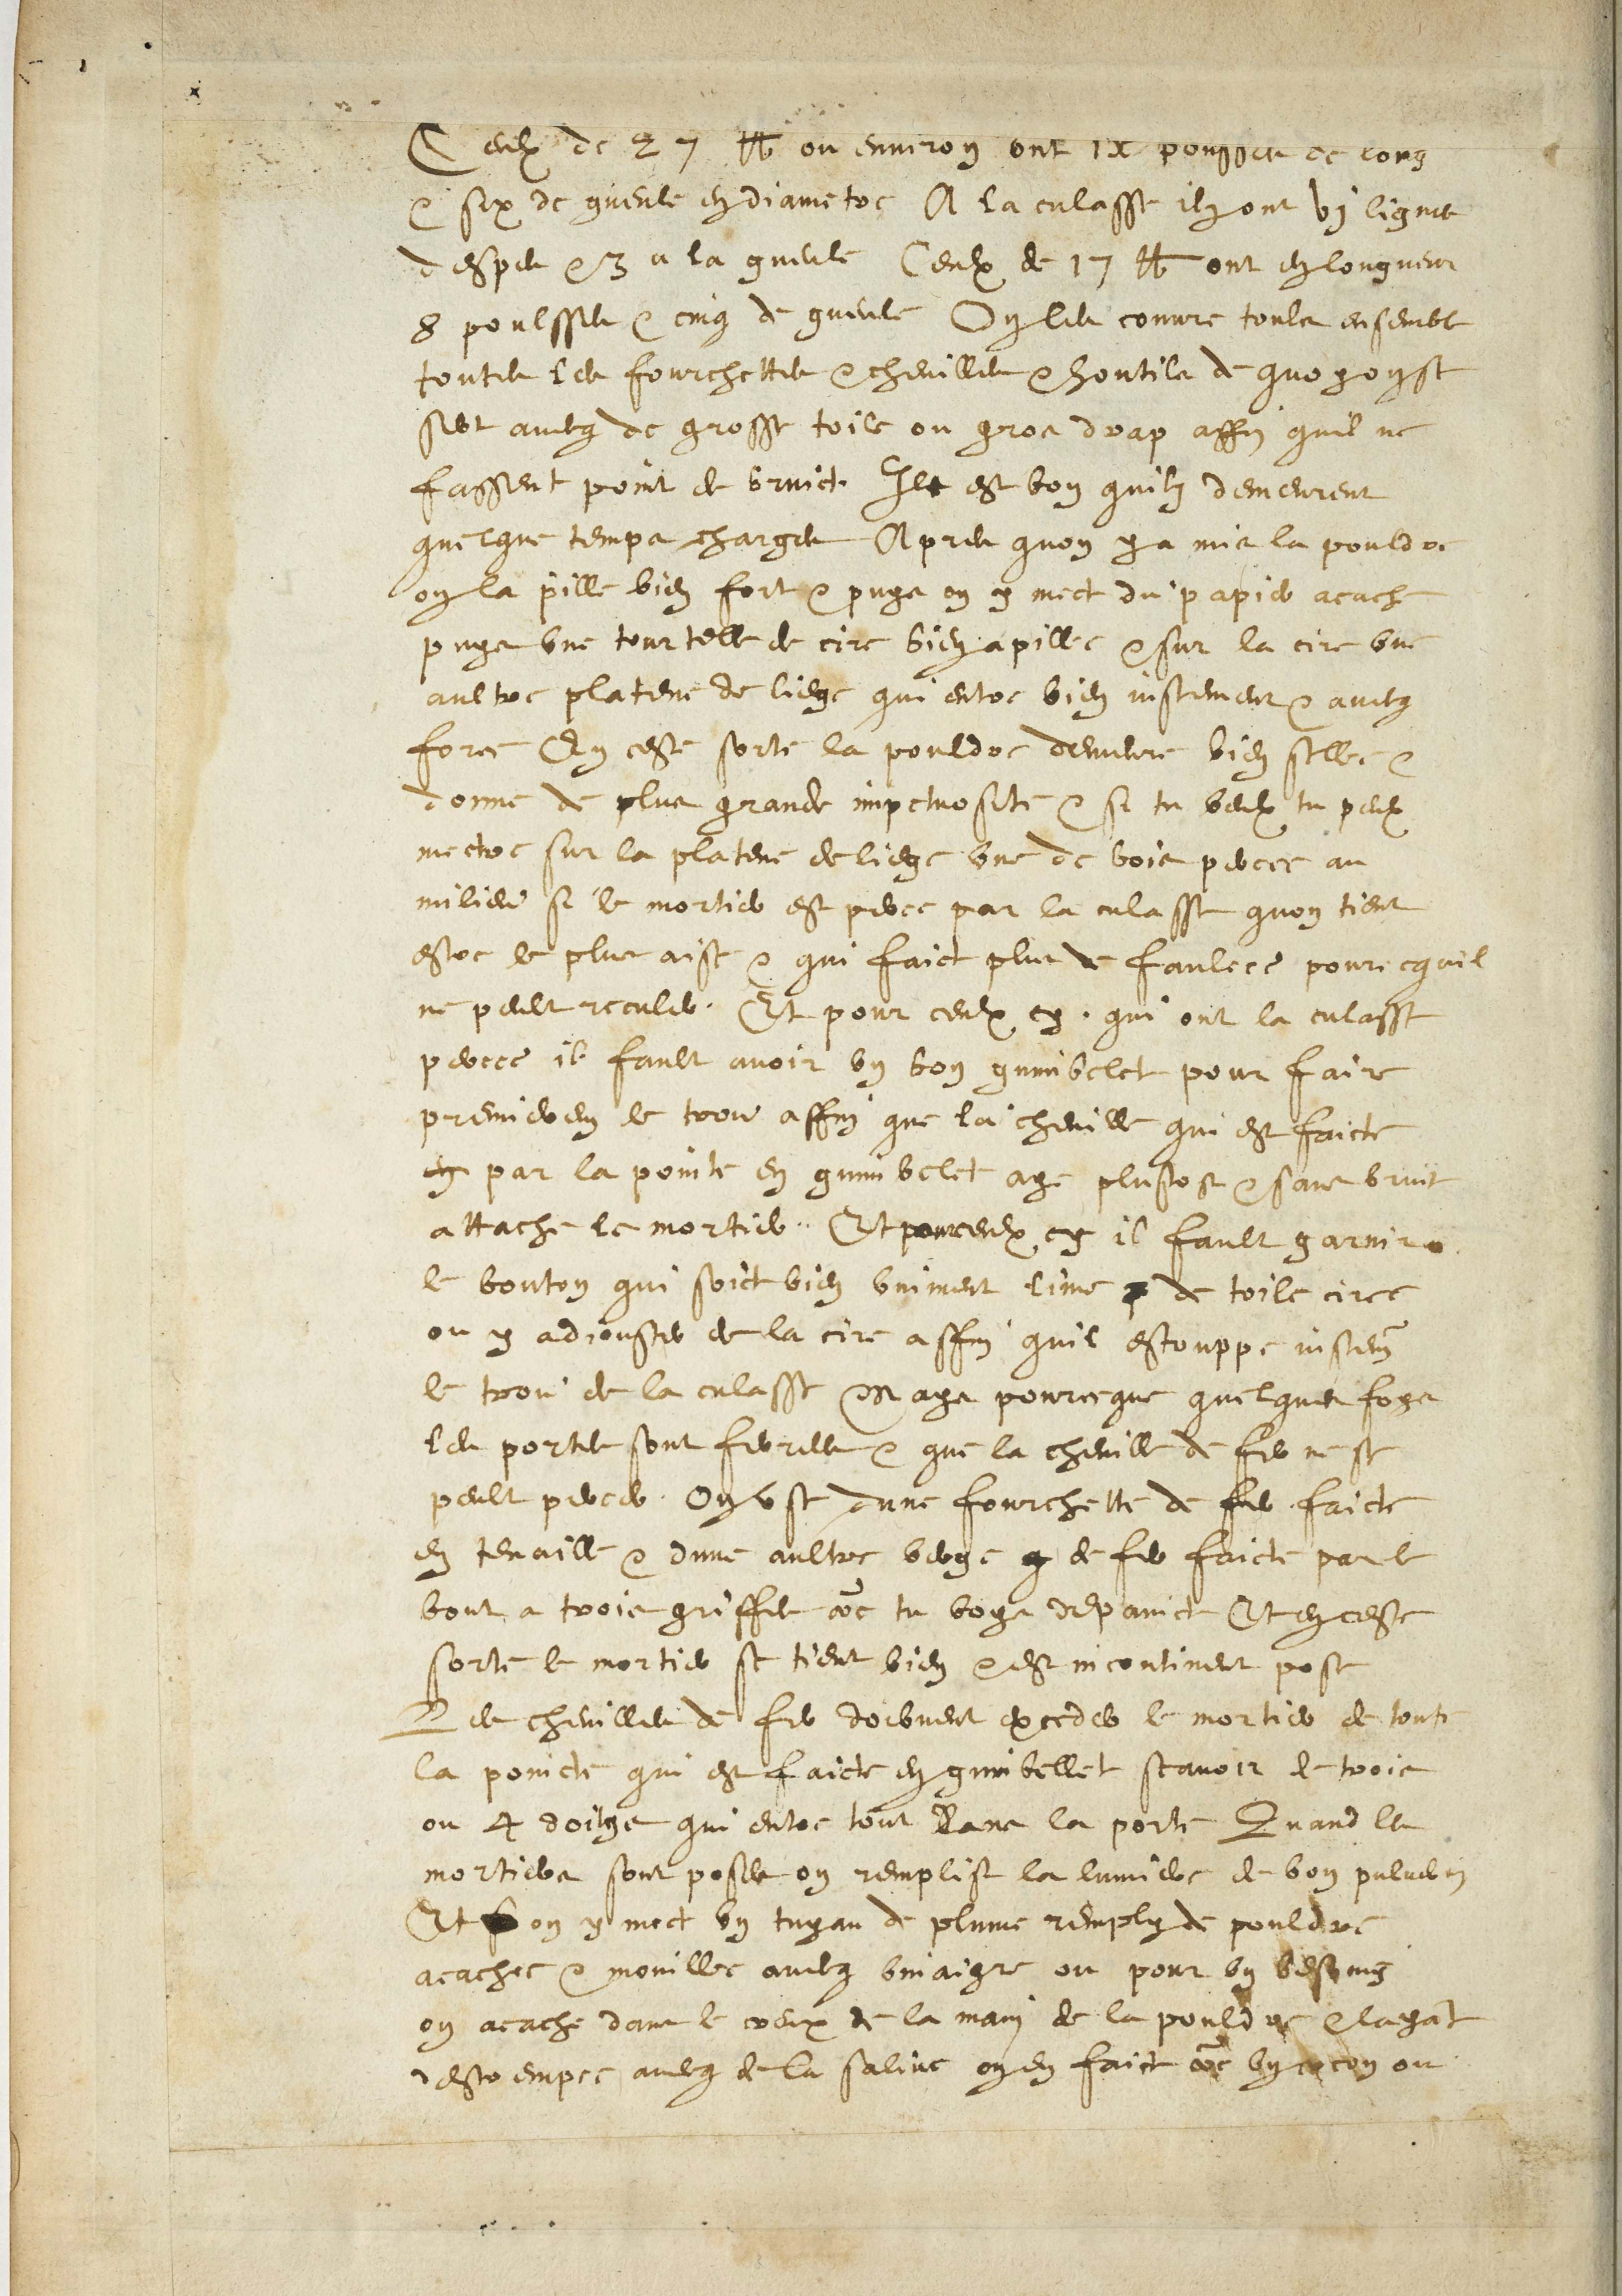 Ceulx de 27 lb ou environ ont ix poulsses de long
& six de gueule en diametre A la culasse ilz ont vj lignes
despes & 3 a la gueule Ceulx de 17 lb ont en longueur
8 poulsses & cinq de gueule On les couvre touts ensemble
toutes les fourchettes & chevilles & houtils de quoy on se
sert avecq de grosse toile ou gros drap affin quil ne
fassent point de bruict Il est bon quilz demeurent
quelque temps charges Apres quon y a mis la pouldre
on la pille bien fort & puys on y mect du papier acache
puys une tourtelle de cire bien apillee & sur la cire une
aultre platene de liege qui entre bien justement & avecq
force En ceste sorte la pouldre demeure bien sellee &
donne de plus grande impetuosite & si tu veulx tu peulx
mectre sur la platene de liege une de bois percee au
milieu si le mortier est perce par la culasse quon tient
estre le plus aise & qui faict plus de faulcee pourcequil
ne peult reculer. Et pour ceulx cy. qui ont la culasse
percee il fault avoir un bon guimbelet pour faire
premierem le trou affin que la cheville qui est faicte
en par la pointe en guimbelet aye plustost & sans bruit
attache le mortier. Et pour ceulx cy il fault garnir
le bouton qui soict bien uniment lime de toile ciree
ou y adjouster de la cire affin quil estouppe justem
le trou de la culasse Mays pourceque quelques foys
les portes sont ferrees & que la cheville de fer ne se
peult percer. On use dune fourchette de fer faicte
en tenaille & dune aultre verge de fer faicte par le
bout a trois griffes co{mm}e tu voys depainct Et en ceste
sorte le mortier se tient bien & est incontinent pose
Les chevilles de fer doibvent exceder le mortier de toute
la poincte qui est faicte en guimbellet scavoir de trois
ou 4 doitgs qui entre tout dans la porte Quand les
mortiers sont poses on remplist la lumiere de bon pulverin
Et on y mect un tuyau de plume remply de pouldre
acachee & mouillee avecq vinaigre ou pour un besoing
on acache dans le creux de la main de la pouldre & layant
destrempee avecq de la salive on en faict co{mm}e un cocon ou